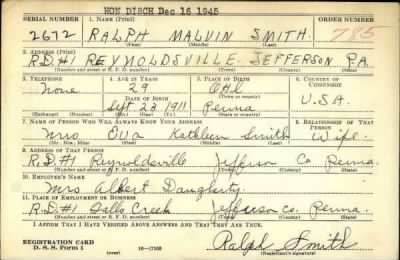 HON DISCH Dec 16 1945
SERIAL NUMBER 1. NAME (Print) ORDER NUMBER
2672 RALPH MALVIN SMITH 785
(First) (Middle) (Last)
2. ADDRESS (Print)
R.D.#1 REYNOLDSVILLE JEFFERSON PA.
(Number and street or R. F. D. number) (Town) (County) (State)
3. TELEPHONE 4. AGE IN YEARS 5. PLACE OF BIRTH 6. COUNTRY OF CITIZENSHIP
None 29
DATE OF BIRTH (Town or county) U.S.A.
Sept 23 1911 Penna
(Exchange) (Number) (Mo.) (Day) (Yr.) (State or country)
7. NAME OF PERSON WHO WILL ALWAYS KNOW YOUR ADDRESS 8. RELATIONSHIP OF THAT PERSON
Mrs Eva Kathleen Smith Wife
(Mr., Mrs., Miss) (First) (Middle) (Last)
9. ADDRESS OF THAT PERSON
R.D.#1 Reynoldsville Jefferson Co Penna.
(Number and street or R. F. D. number) (Town) (County) (State)
10. EMPLOYER'S NAME
Mrs Albert
11. PLACE OF EMPLOYMENT OR BUSINESS
R.D.#1 Falls Creek Jefferson Co. Penna.
(Number and street or R. F. D. number) (Town) (County) (State)
I AFFIRM THAT I HAVE VERIFIED ABOVE ANSWERS AND THAT THEY ARE TRUE.
REGISTRATION CARD
D. S. S. Form 1 16—17105 Ralph Smith
(Registrant's signature)